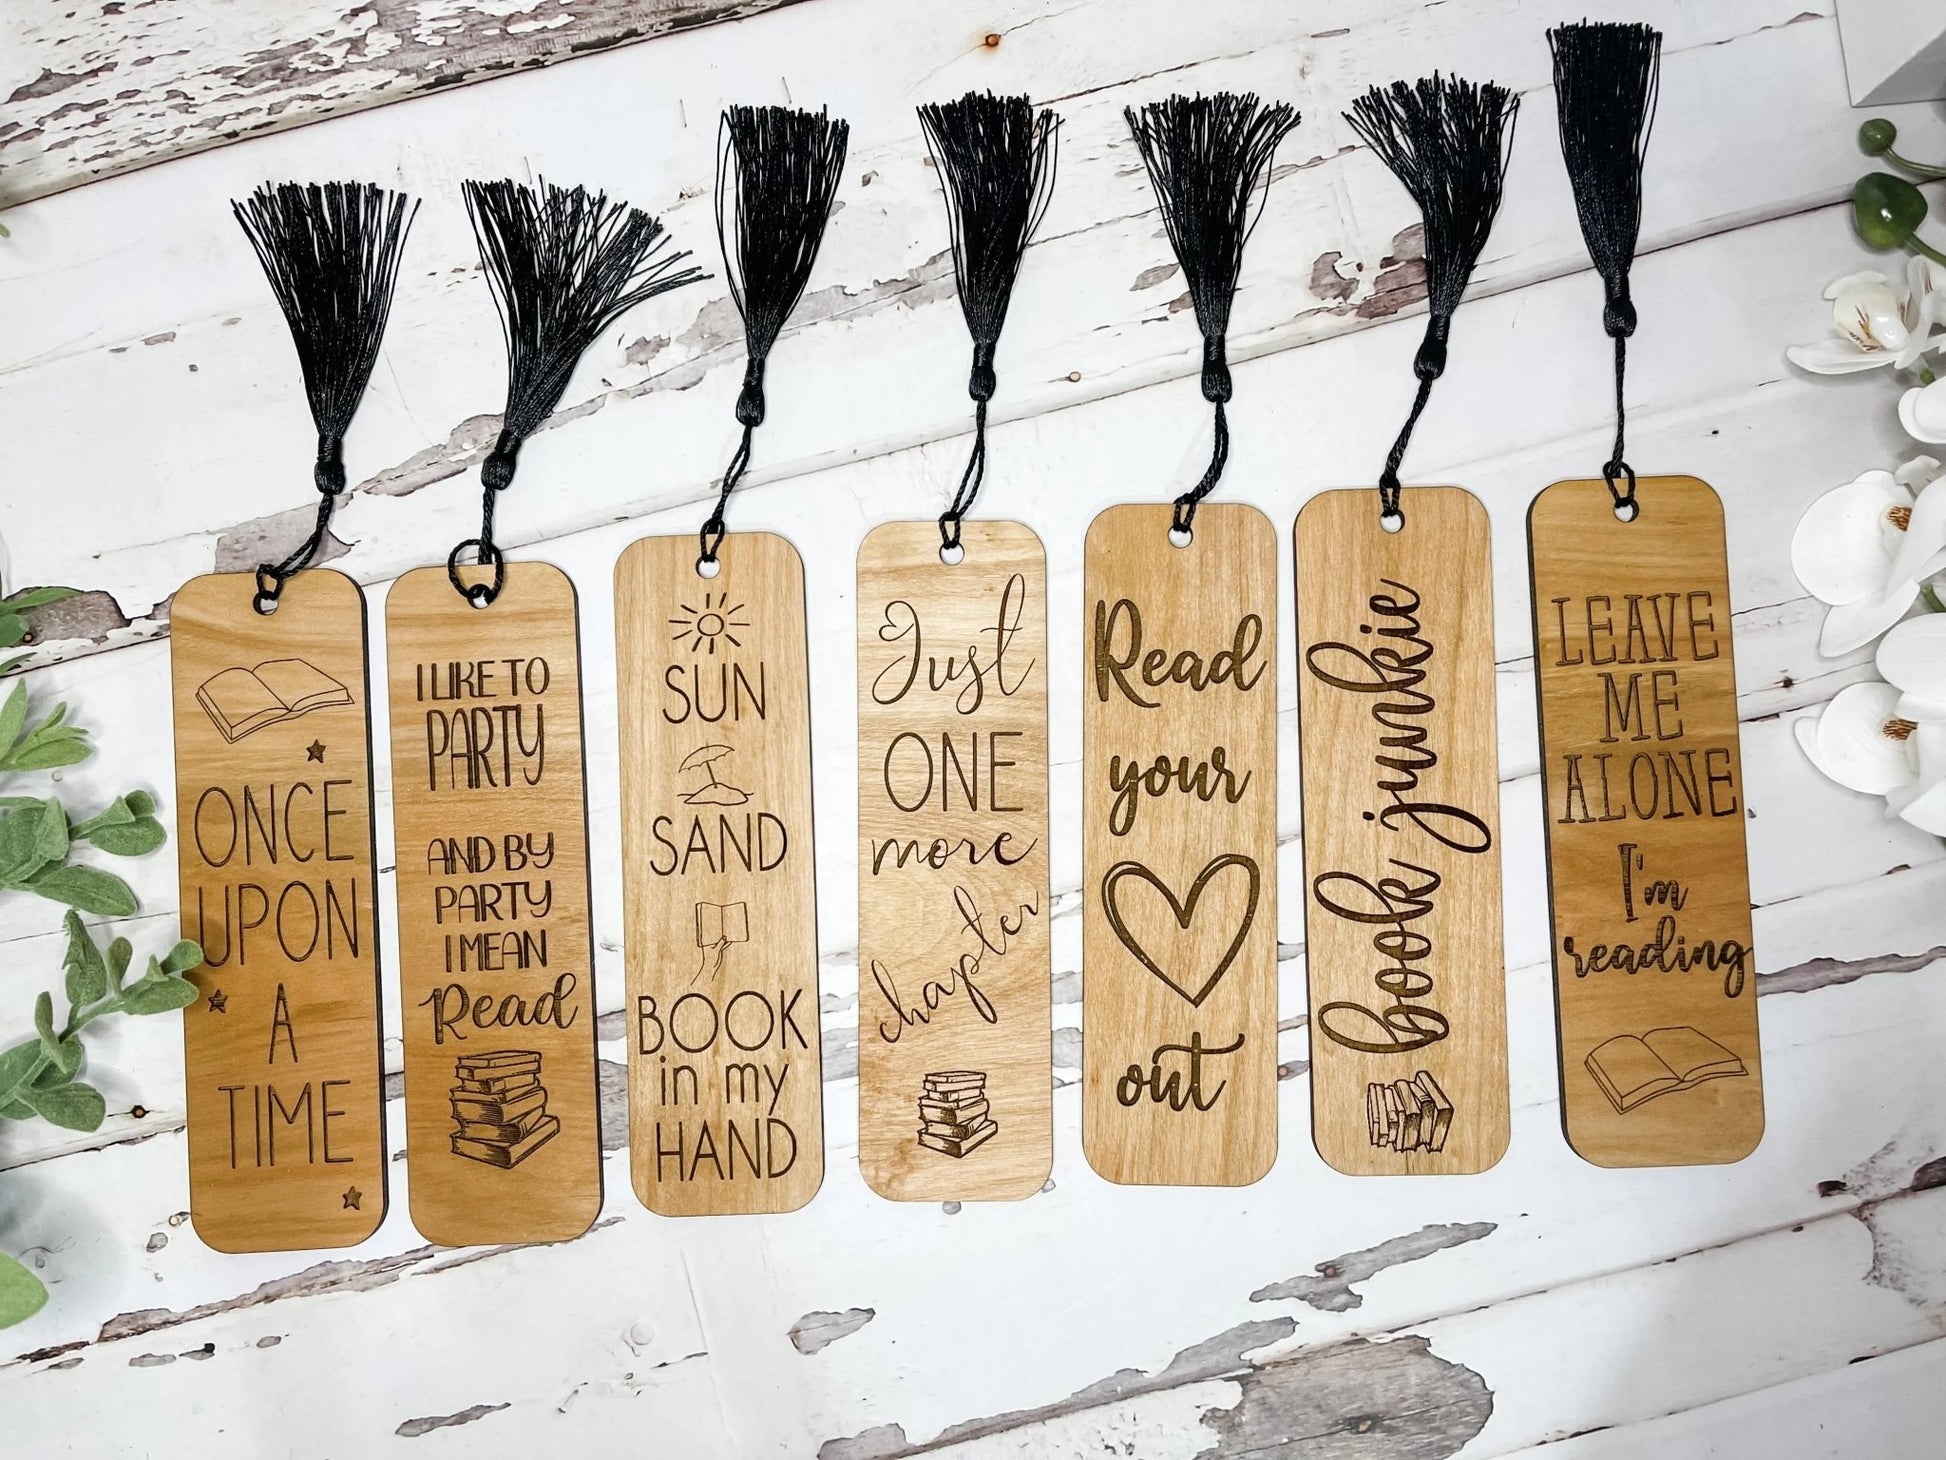 ONCE
UPON
A
TIME
I LIKE TO
PARTY
AND BY
PARTY
I MEAN
Read
SUN
SAND
BOOK
in my
HAND
Just
ONE
more
chapter
Read
your
out
book junkie
LEAVE
ME
ALONE
I'm
reading